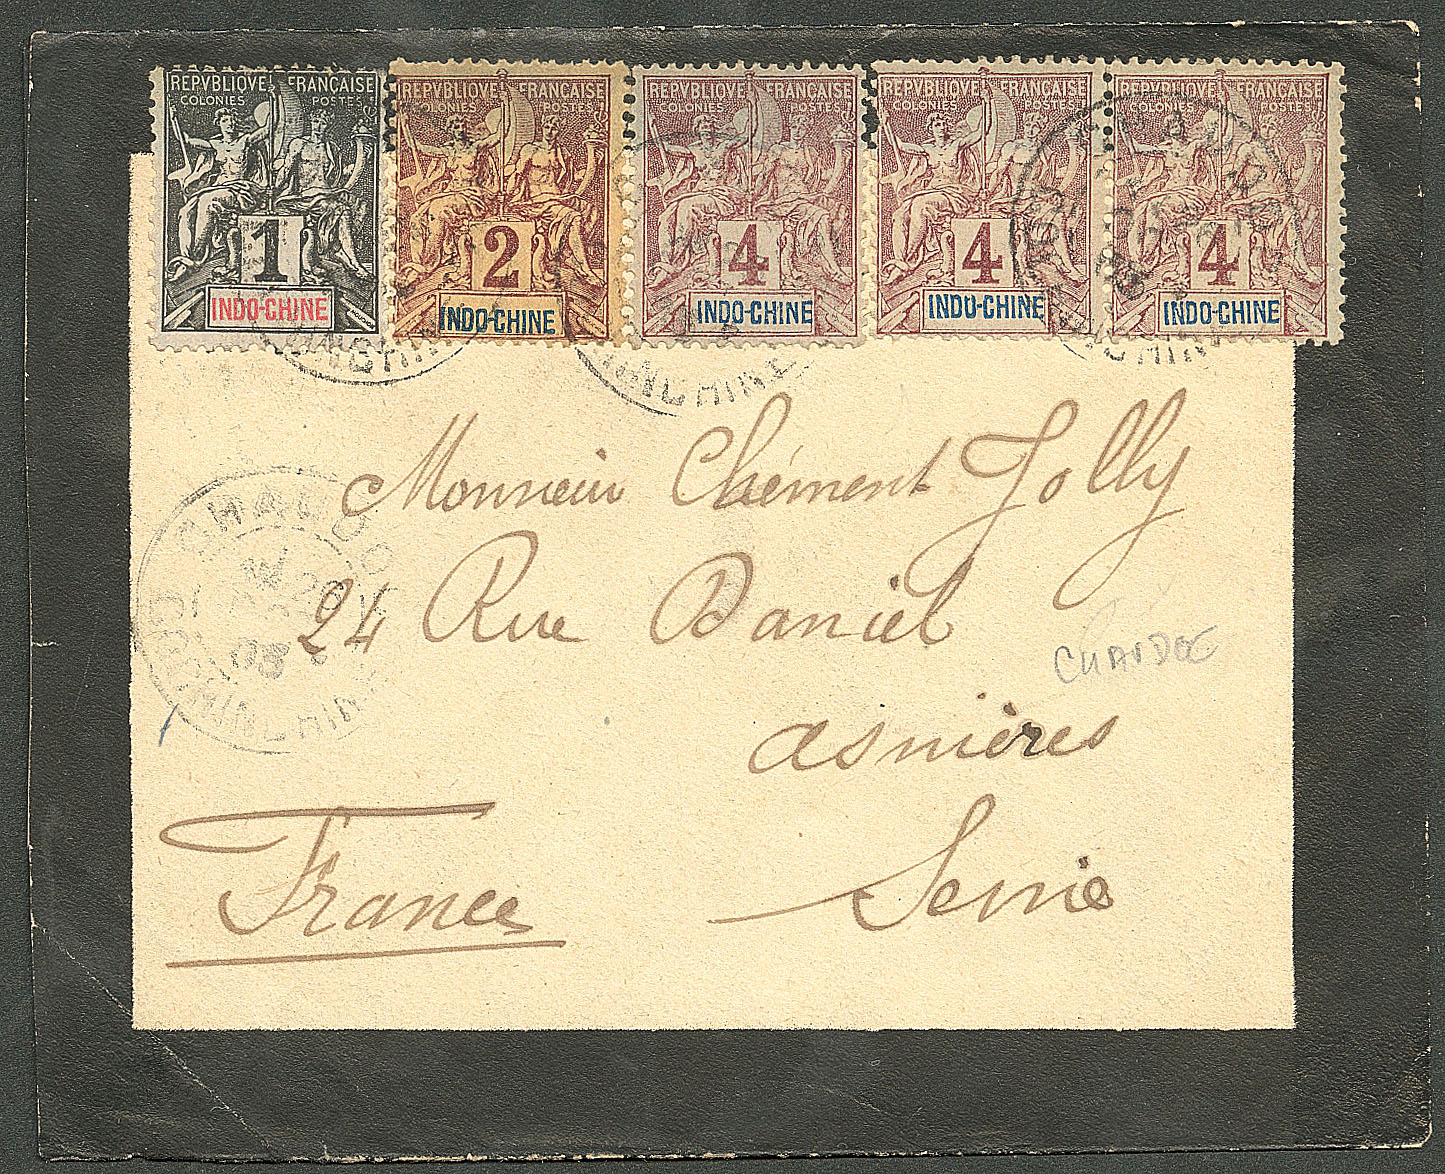 REPVBLIQVE FRANÇAISE
COLONIES POSTES
1
INDO-CHINE
REPVBLIQVE FRANÇAISE
COLONIES POSTES
2
INDO-CHINE
REPVBLIQVE FRANÇAISE
COLONIES POSTES
4
INDO-CHINE
REPVBLIQVE FRANÇAISE
COLONIES POSTES
4
INDO-CHINE
REPVBLIQVE FRANÇAISE
COLONIES POSTES
4
INDO-CHINE
Monsieur Clément Jolly
24 Rue Daniel
Asnières
Seine
France
CHAUDOC
COCHINCHINE
03